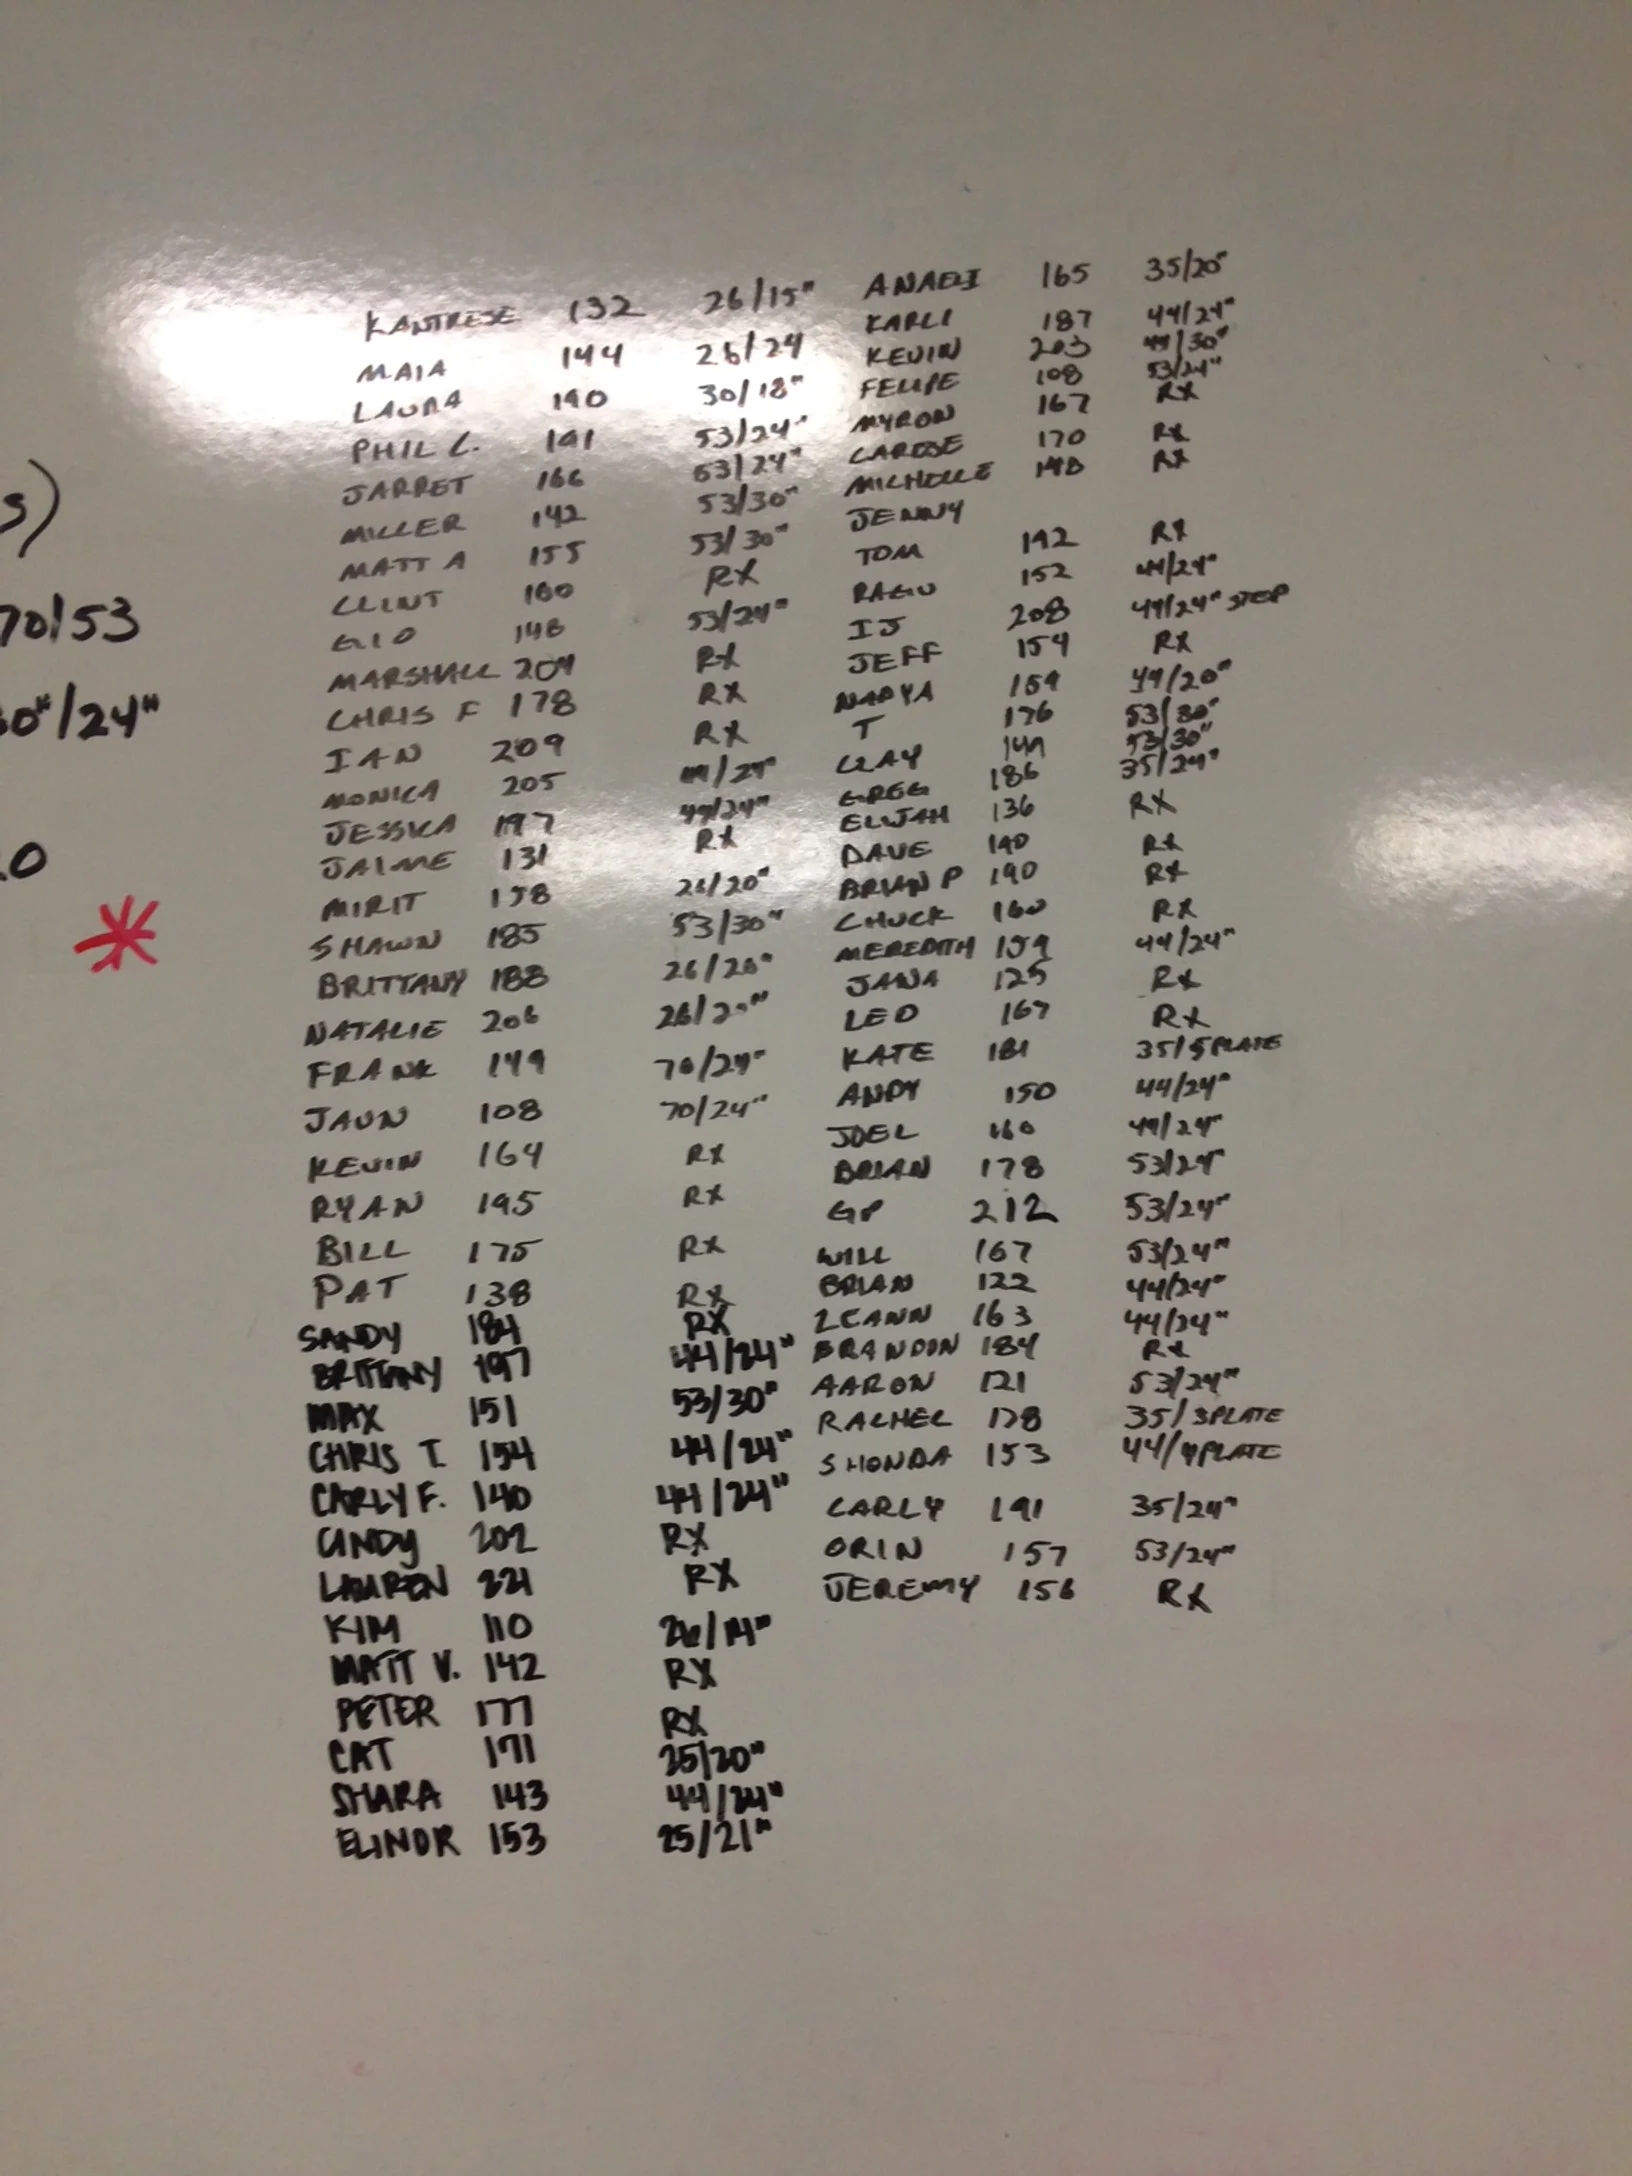 s)
70/53
30"/24"
.0
KANTRESE 132 26/15"
MAIA 144 26/24
LAURA 190 30/18"
PHIL C. 191 53/24"
JARRET 166 53/24"
MILLER 142 53/30"
MATT A 155 53/30"
CLINT 180 RX
GIO 148 53/24"
MARSHALL 204 RX
CHRIS F 178 RX
IAN 209 RX
MONICA 205 44/24"
JESSICA 197 44/24"
JAIME 131 RX
MIRIT 158 26/20"
SHAWN 185 53/30"
BRITTANY 188 26/20"
NATALIE 206 26/20"
FRANK 149 70/24"
JAUN 108 70/24"
KEVIN 164 RX
RYAN 195 RX
BILL 175 RX
PAT 138 RX
SANDY 184 RX
BRITTANY 197 44/24"
MAX 151 53/30"
CHRIS T. 154 44/24"
CARLY F. 140 44/24"
CINDY 202 RX
LAUREN 221 RX
KIM 110 26/14"
MATT V. 142 RX
PETER 177 RX
CAT 171 25/20"
SHARA 143 44/24"
ELINOR 153 25/21"
ANAELI 165 35/20"
KARLI 187 44/24"
KEVIN 203 44/30"
FELIPE 108 53/24"
MYRON 167 RX
CARESE 170 RX
MICHELLE 148 RX
JENNY
TOM 192 RX
RAGU 152 44/24"
IJ 208 44/24" STEP
JEFF 154 RX
NADYA 159 44/20"
T 176 53/30"
CLAY 149 53/30"
GREG 186 35/24"
ELIJAH 136 RX
DAVE 190 RX
BRIAN P 190 RX
CHUCK 160 RX
MEREDITH 159 44/24"
JANA 125 RX
LEO 167 RX
KATE 181 35/5 PLATE
ANDY 150 44/24"
JOEL 160 44/24"
BRIAN 178 53/24"
GP 212 53/24"
WILL 167 53/24"
BRIAN 122 44/24"
LEANN 163 44/24"
BRANDON 184 RX
AARON 121 53/24"
RACHEL 178 35/3PLATE
SHONDA 153 44/4PLATE
CARLY 191 35/24"
ORIN 157 53/24"
JEREMY 156 RX